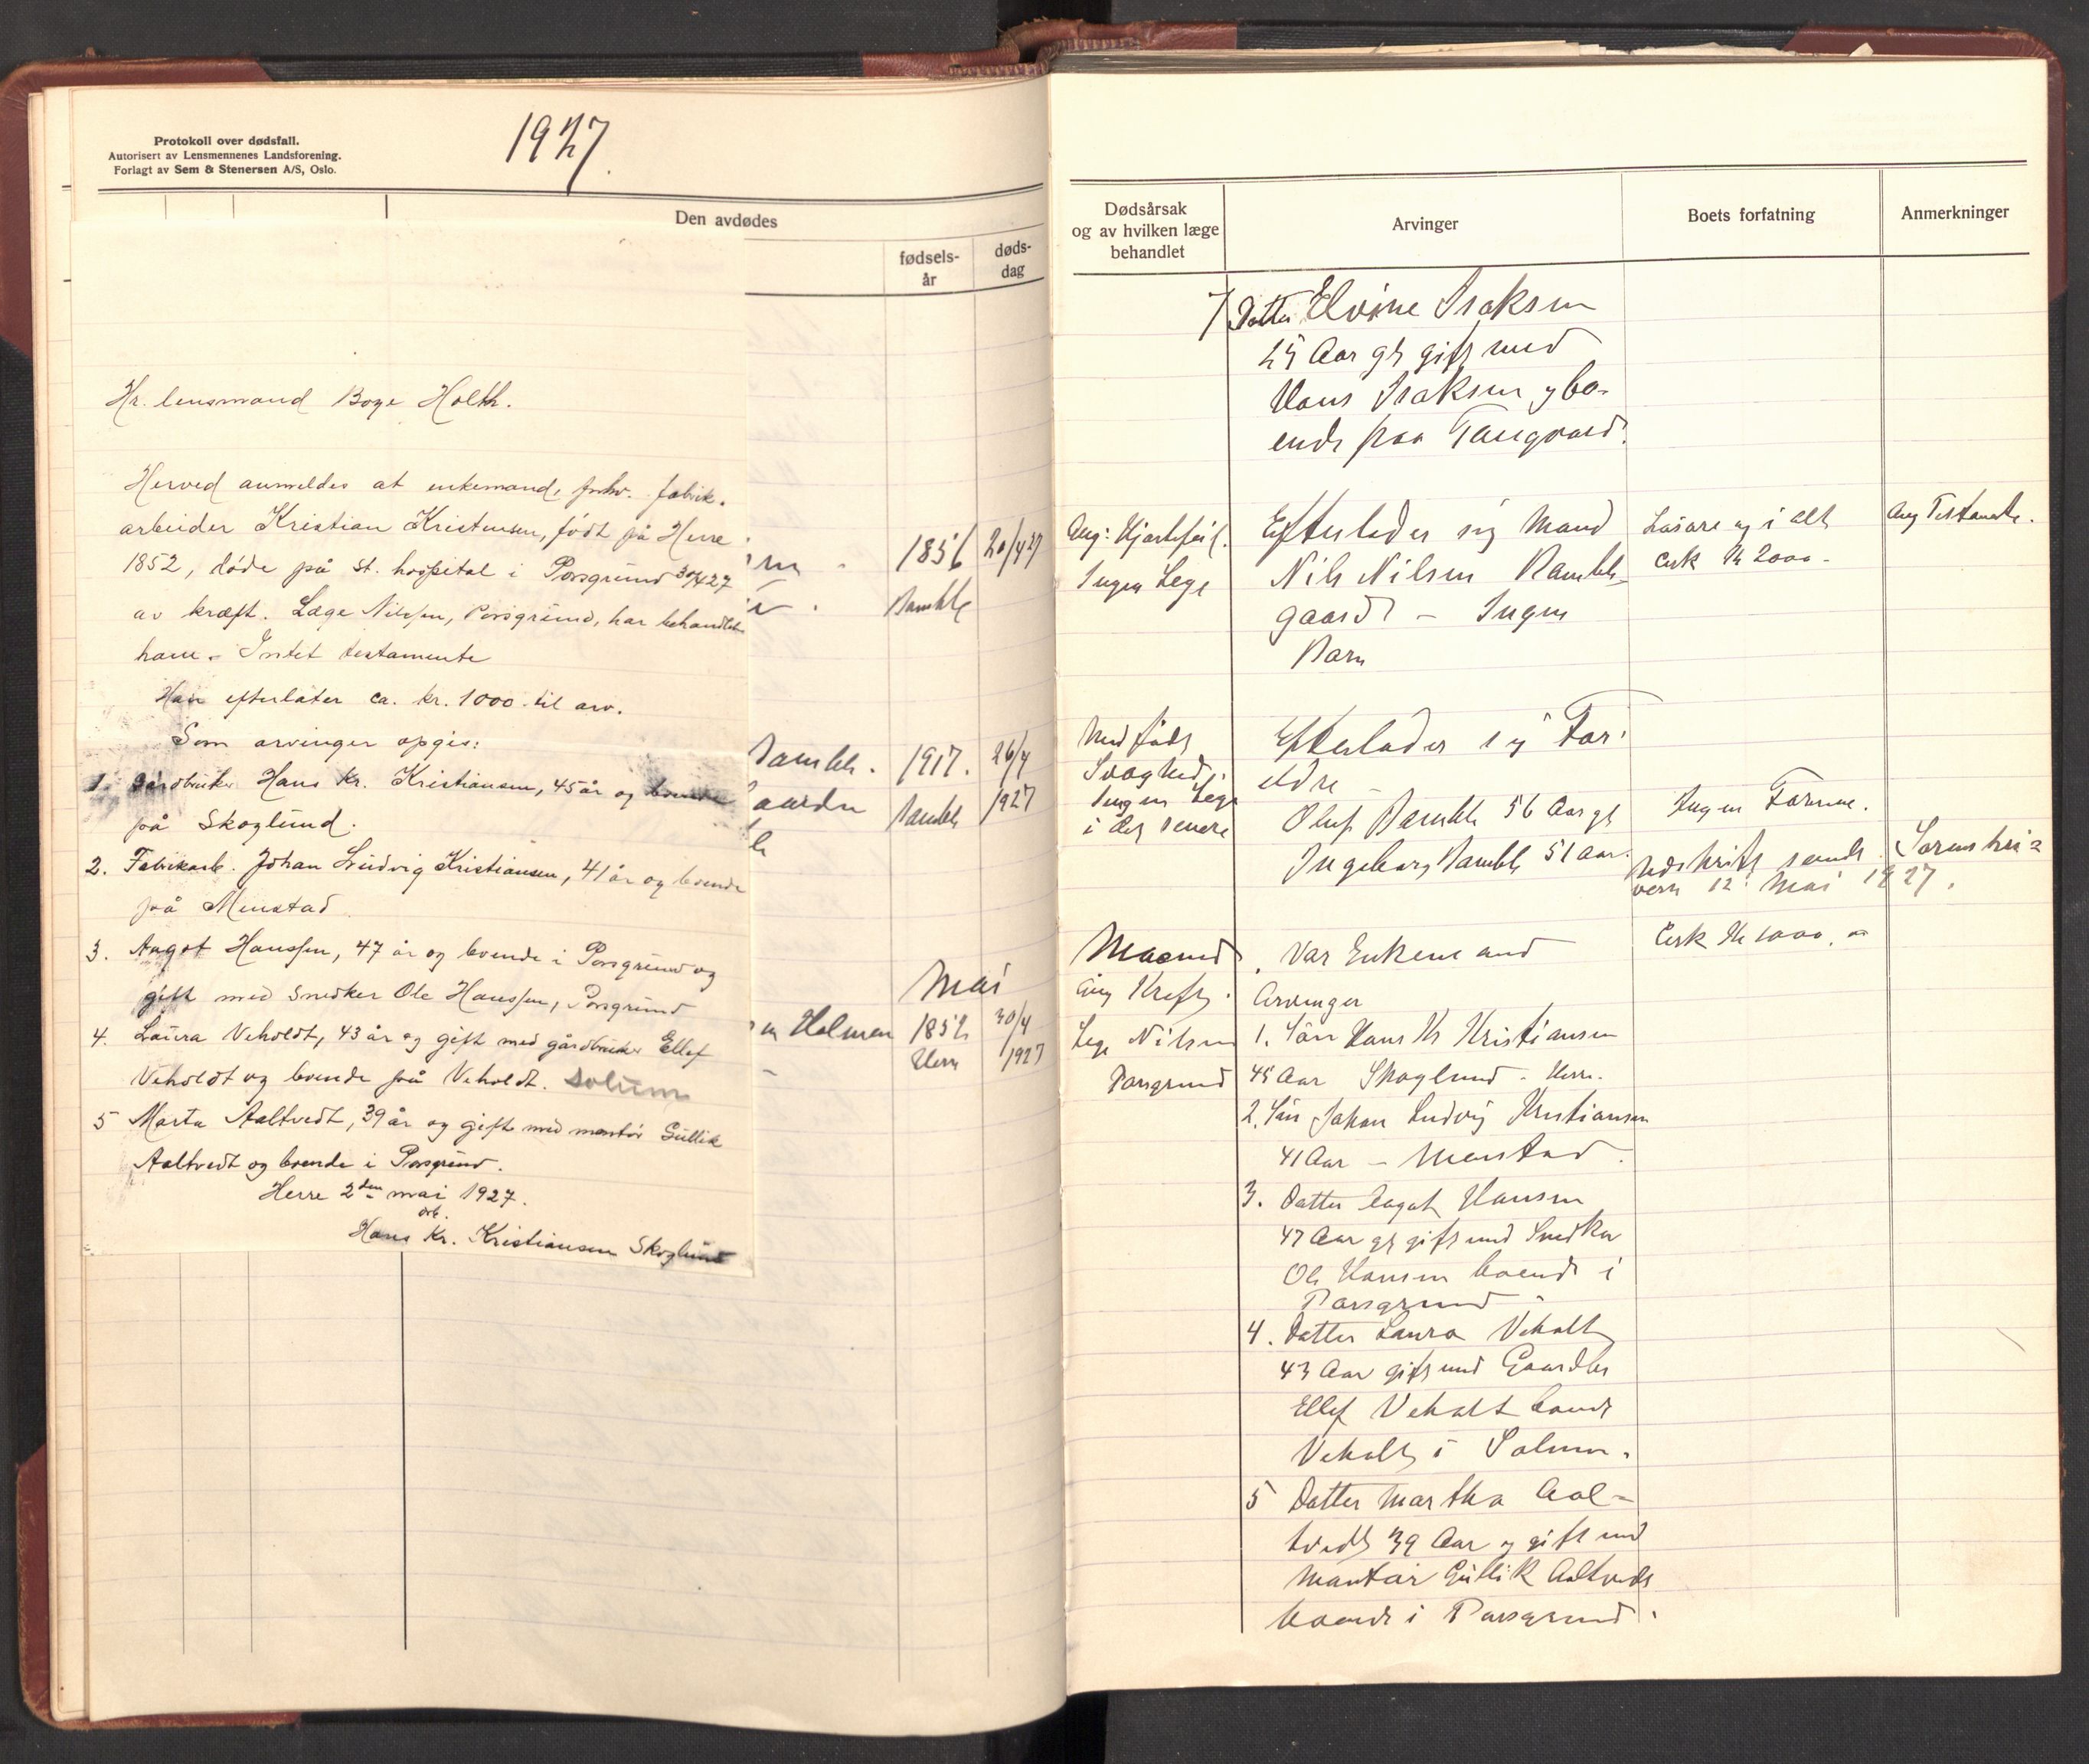 Protokoll over dødsfall.
Autorisert av Lensmennenes Landsforening.
Forlagt av Sem & Stenersen A/S, Oslo.
1927.
Den avdødes
fødsels-
år
døds-
dag
Hr. lensmand Boye Holth.
Herved anmeldes at enkemand, fhv. fabrik.
arbeider Kristian Kristensen, født på Herre
1852, døde på St. hospital i Porsgrund 30/4 27
av kræft. Læge Nilssen, Porsgrund, har behandlet
ham. Intet testamente
Han efterlater ca. kr. 1000 til arv.
Som arvinger opgis:
1. Gårdbruker Hans Kr. Kristiansen, 45 år og boende
på Skoglund.
2. Fabrikarb. Johan Ludvig Kristiansen, 41 år og boende
på Menstad
3. Aagot Hanssen, 47 år og boende i Porsgrund og
gift med snedker Ole Hanssen, Porsgrund
4. Laura Veholdt, 43 år og gift med gårdbruker Ellef
Veholdt og boende på Veholdt. Solum
5 Marta Aaltvedt, 39 år og gift med montør Gullik
Aaltvedt og boende i Porsgrund.
Herre 2den mai 1927.
arb.
Hans Kr. Kristiansen Skoglund
1856 20/4 27
Bamble
Bamble. 1917. 26/4
aarden Bamble 1927
le
Mai
Holmen 1852 30/4
Herre 1927
Dødsårsak
og av hvilken læge
behandlet
Arvinger
Boets forfatning
Anmerkninger
7 Datter Elvine Isaksen
25 Aar gl gift med
Hans Isaksen og bo-
ende paa Tangvald.
Ang: Hjertefeil.
Ingen Lege
Efterlader sig Mand
Nils Nilsen Bamble-
gaard – Ingen
Barn
Løsøre og i alt
cirk Kr 2000 -
Ang Testamente.
Medfødt
Svaghed
Ingen Lege
i det senere
Efterlader sig For-
eldre –
Oluf Bamble 56 Aar gl
Ingeborg Bamble 51 aar.
Ingen Formue.
Udskrift sendt Sorenskri-
vern 12 Mai 1927.
Maaned
Ang Kreft.
Lege Nilsen
Porsgrund
Var Enkemand
Arvinger
1. Søn Hans Kr Kristiansen
45 Aar Skoglund - Herre.
2. Søn Johan Ludvig Kristiansen
41 Aar – Menstad.
3. Datter Aagot Hansen
47 Aar gl gift med Snedker
Ole Hansen boende i
Porsgrund –
4. Datter Laura Veholt
43 Aar gift med Gaardbr
Ellef Veholt boende
Veholt i Solum.
5 Datter Martha Aal-
tvedt 39 Aar og gift med
Montør Gullik Aaltvedt
boende i Porsgrund.
Cirk Kr 1000. –